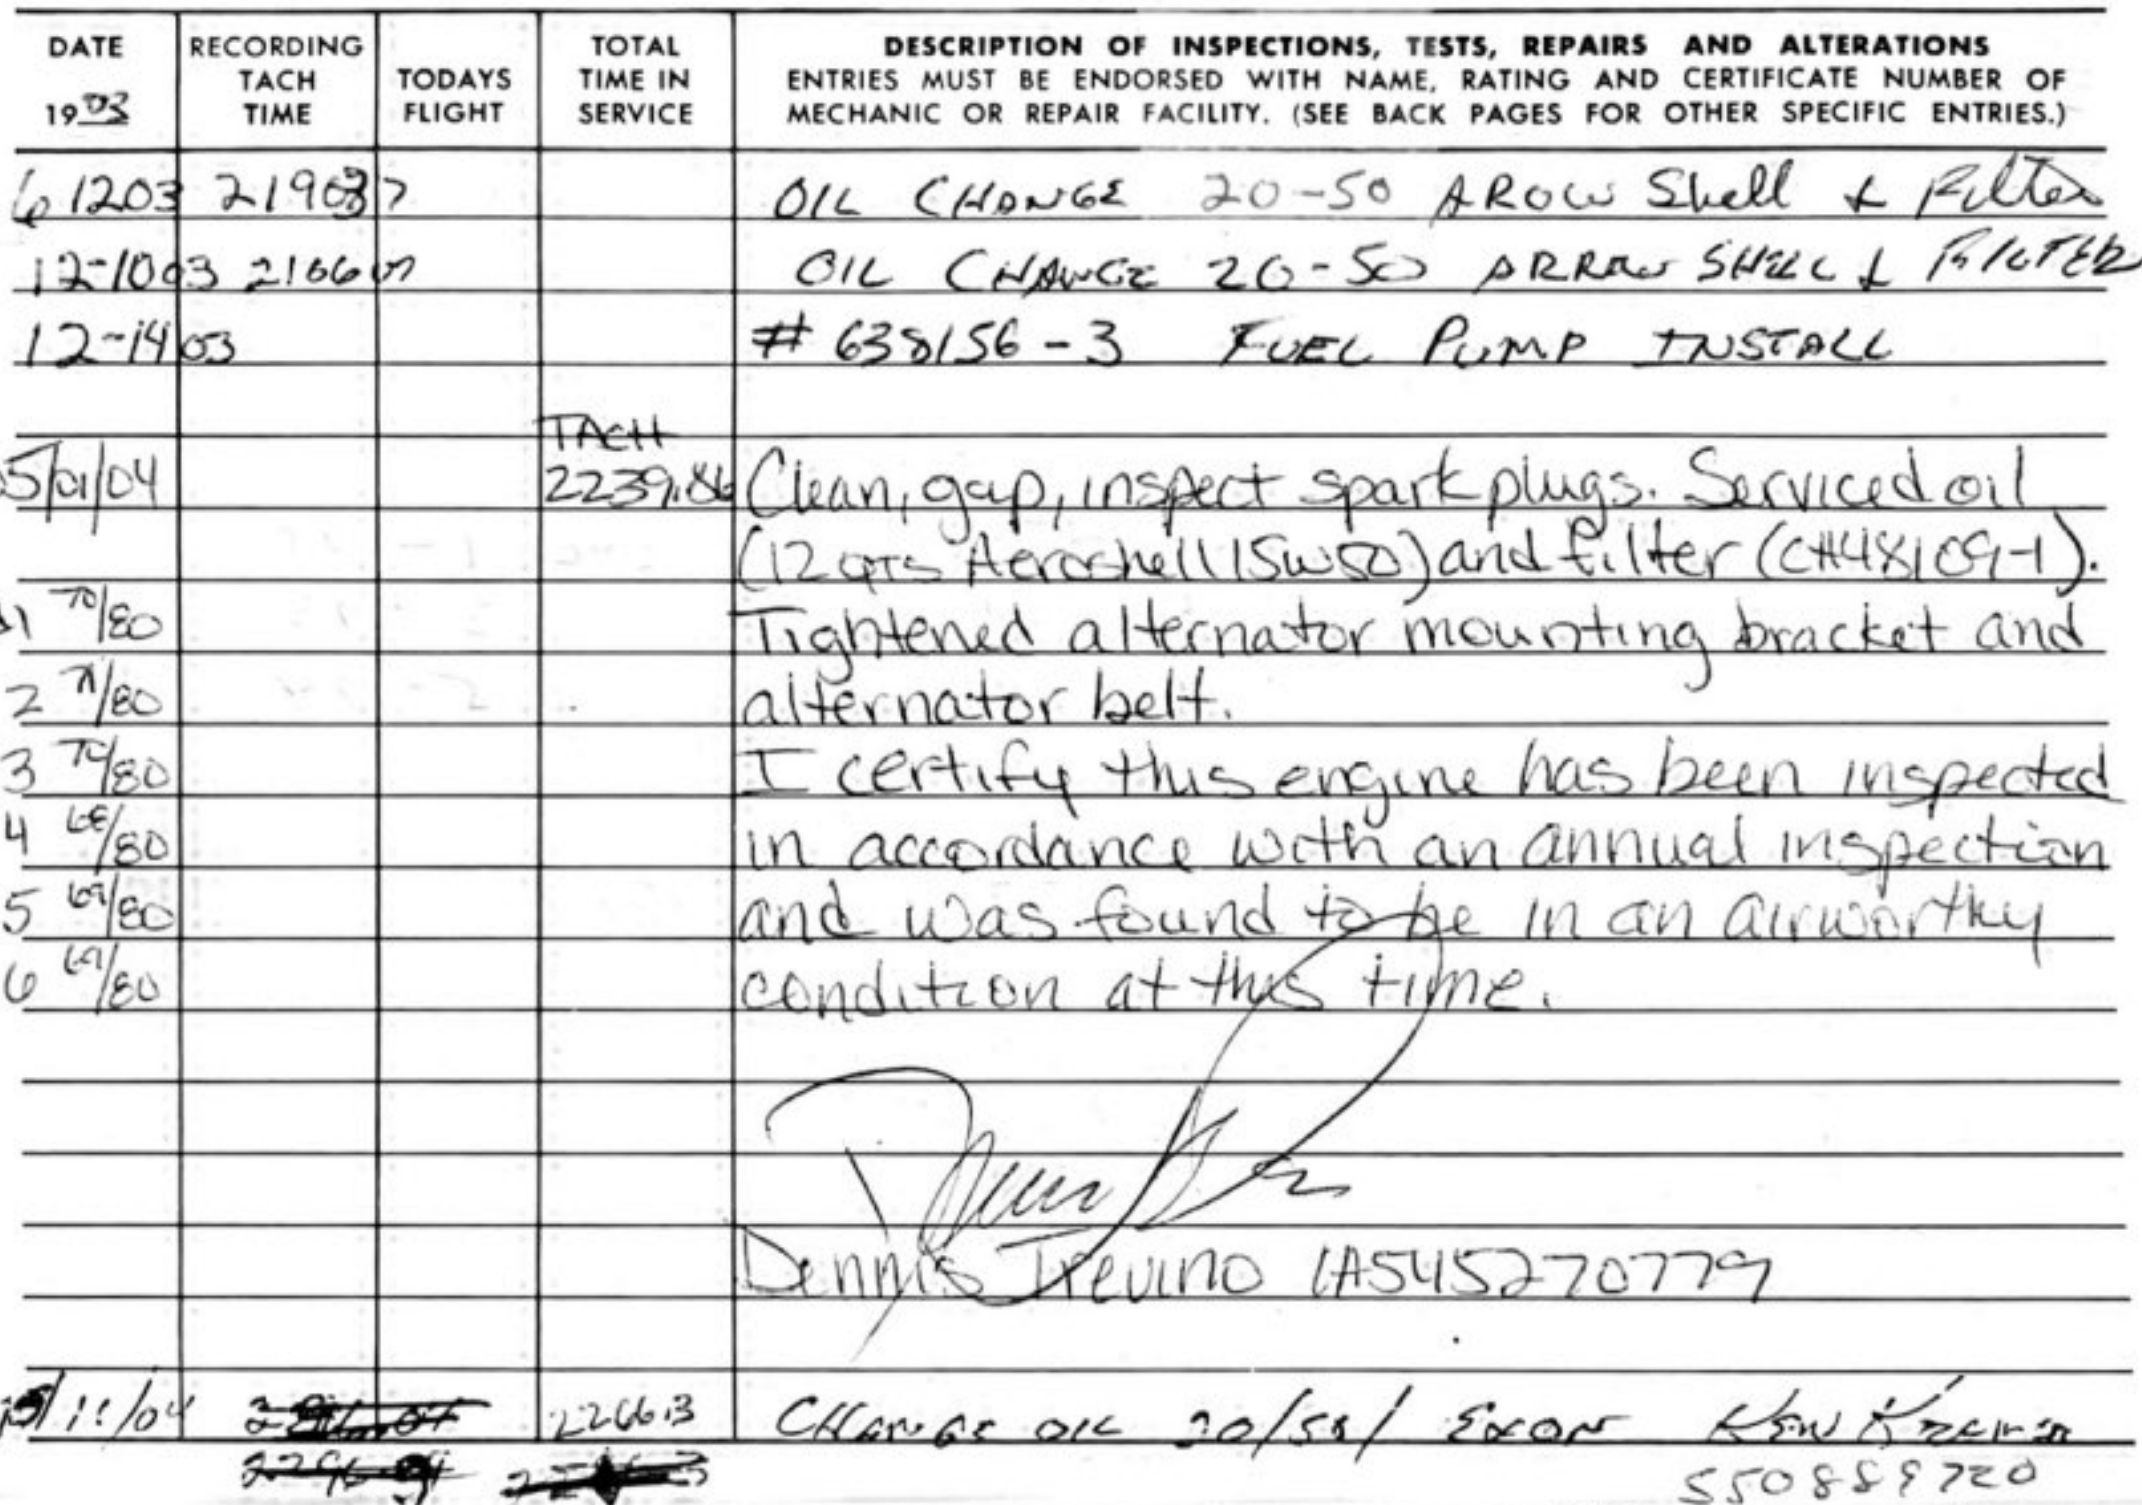 DATE RECORDING TACH TIME TODAYS FLIGHT TOTAL TIME IN SERVICE DESCRIPTION OF INSPECTIONS, TESTS, REPAIRS AND ALTERATIONS
ENTRIES MUST BE ENDORSED WITH NAME, RATING AND CERTIFICATE NUMBER OF
1903 MECHANIC OR REPAIR FACILITY. (SEE BACK PAGES FOR OTHER SPECIFIC ENTRIES.)
6 1203 OIL CHANGE 20-50 AROW Shell & Filter
12-1003 OIL CHANGE 20-50 ARROW SHELL & FILTER
12-1403 # 638156-3 FUEL PUMP INSTALL
TACH
05/01/04 2239.86 Clean, gap, inspect spark plugs. Serviced oil
(12 qts Aeroshell 15W50) and filter (CH48109-1).
70/80 Tightened alternator mounting bracket and
2 71/80 alternator belt.
3 74/80 I certify this engine has been inspected
4 68/80 in accordance with an annual inspection
5 69/80 and was found to be in an airworthy
6 69/80 condition at this time.
Dennis Trevino IA545270779
11/04 2266.3 CHANGE OIL 20/50/ EXON KEN
550889720